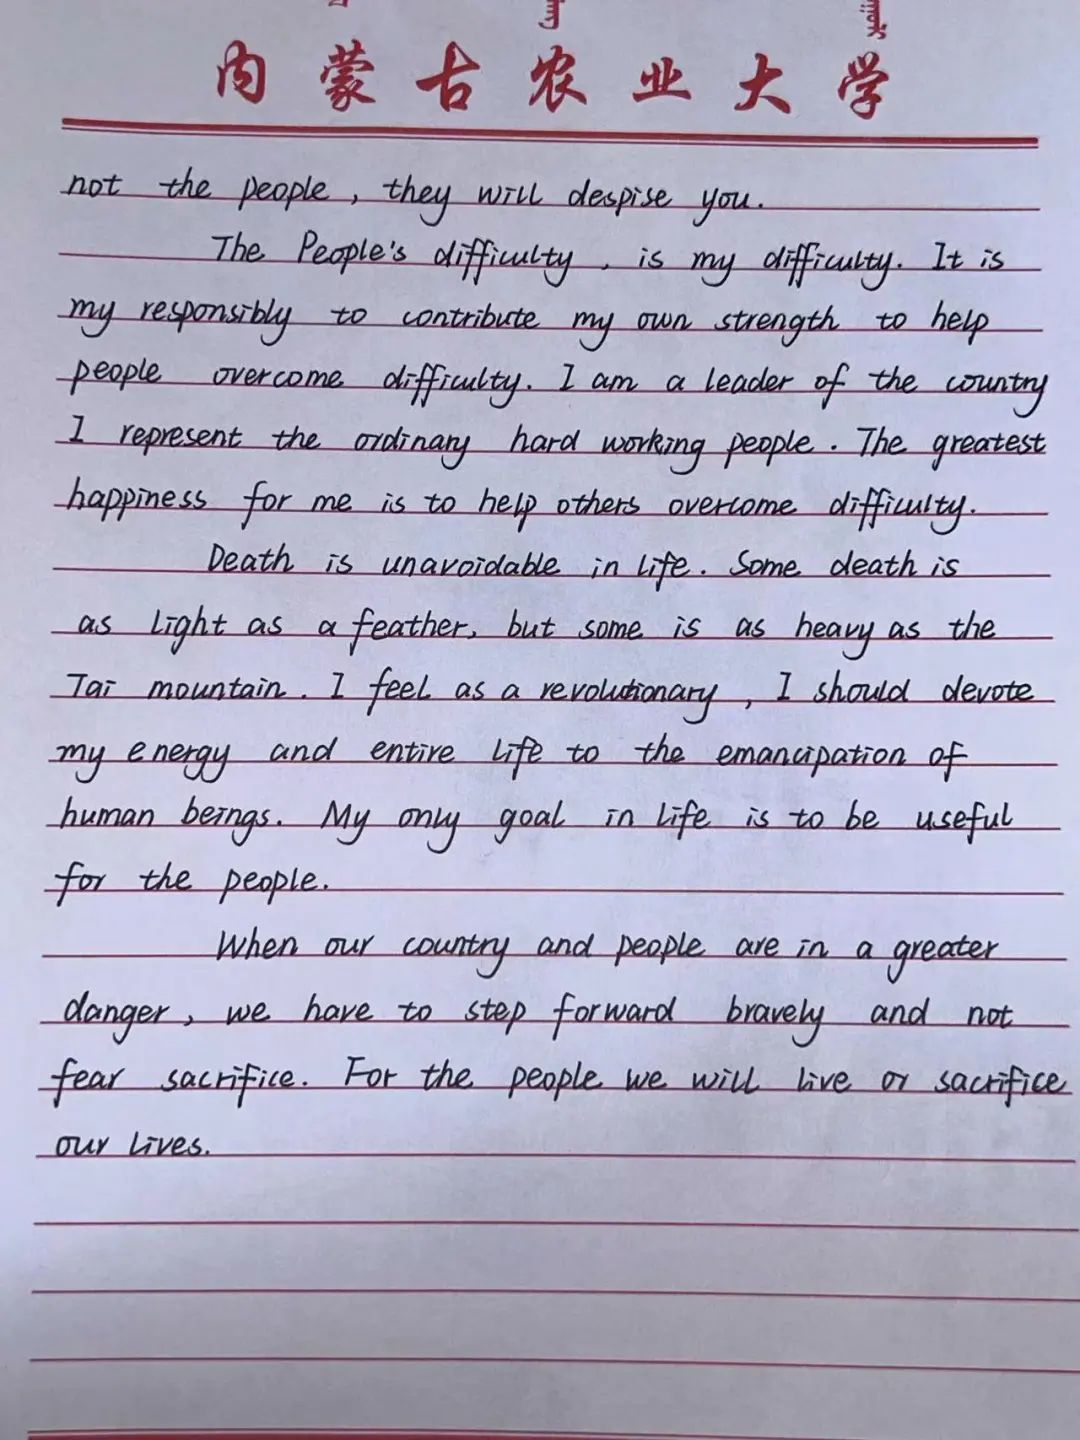 内蒙古农业大学
not the people, they will despise you.
The People's difficulty, is my difficulty. It is
my responsibly to contribute my own strength to help
people overcome difficulty. I am a leader of the country
I represent the ordinary hard working people. The greatest
happiness for me is to help others overcome difficulty.
Death is unavoidable in life. Some death is
as light as a feather, but some is as heavy as the
Tai mountain. I feel as a revolutionary, I should devote
my energy and entire life to the emancipation of
human beings. My only goal in life is to be useful
for the people.
When our country and people are in a greater
danger, we have to step forward bravely and not
fear sacrifice. For the people we will live or sacrifice
our lives.